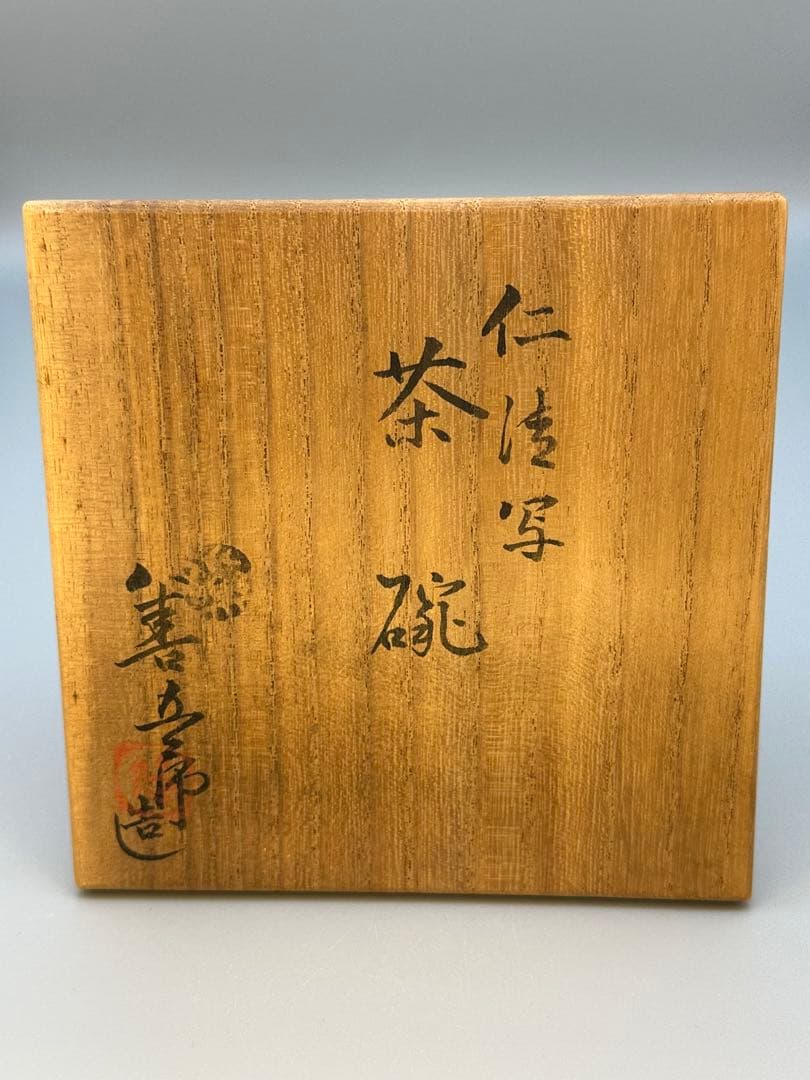 仁清写
茶碗
善五郎造